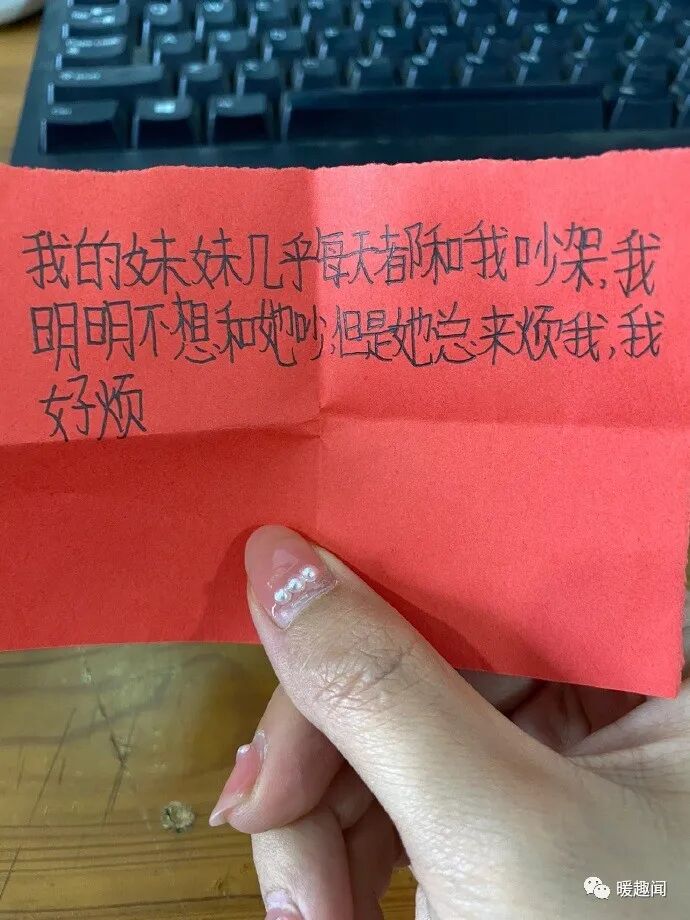 我的妹妹几乎每天都和我吵架,我
明明不想和她吵,但是她总来烦我,我
好烦
暖趣闻